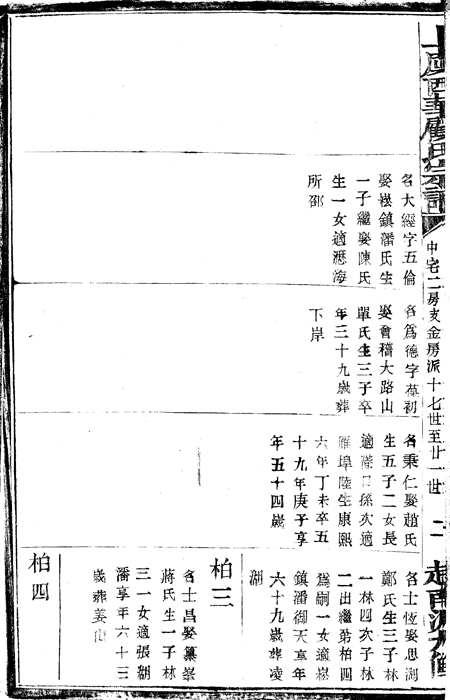 上虞西華顧氏宗譜
中宅二房支金房派十七世至廿一世
二
名大經字五倫
娶崧鎮潘氏生
一子繼娶陳氏
生一女適瀝海
所邵
名為德字葆初
娶會稽大路山
單氏生三子卒
年三十九歲葬
下岸
名秉仁娶趙氏
生五子二女長
適孫次適
雁埠陸生康熙
六年丁未卒五
十九年庚子享
年五十四歲
名士恆娶思湖
鄭氏生三子林
一林四次子林
二出繼弟柏四
為嗣一女適崧
鎮潘御天享年
六十九歲葬淩
湖
柏三
名士昌娶
蔣氏生一子林
三一女適張湖
潘享年六十三
歲葬姜山
柏四